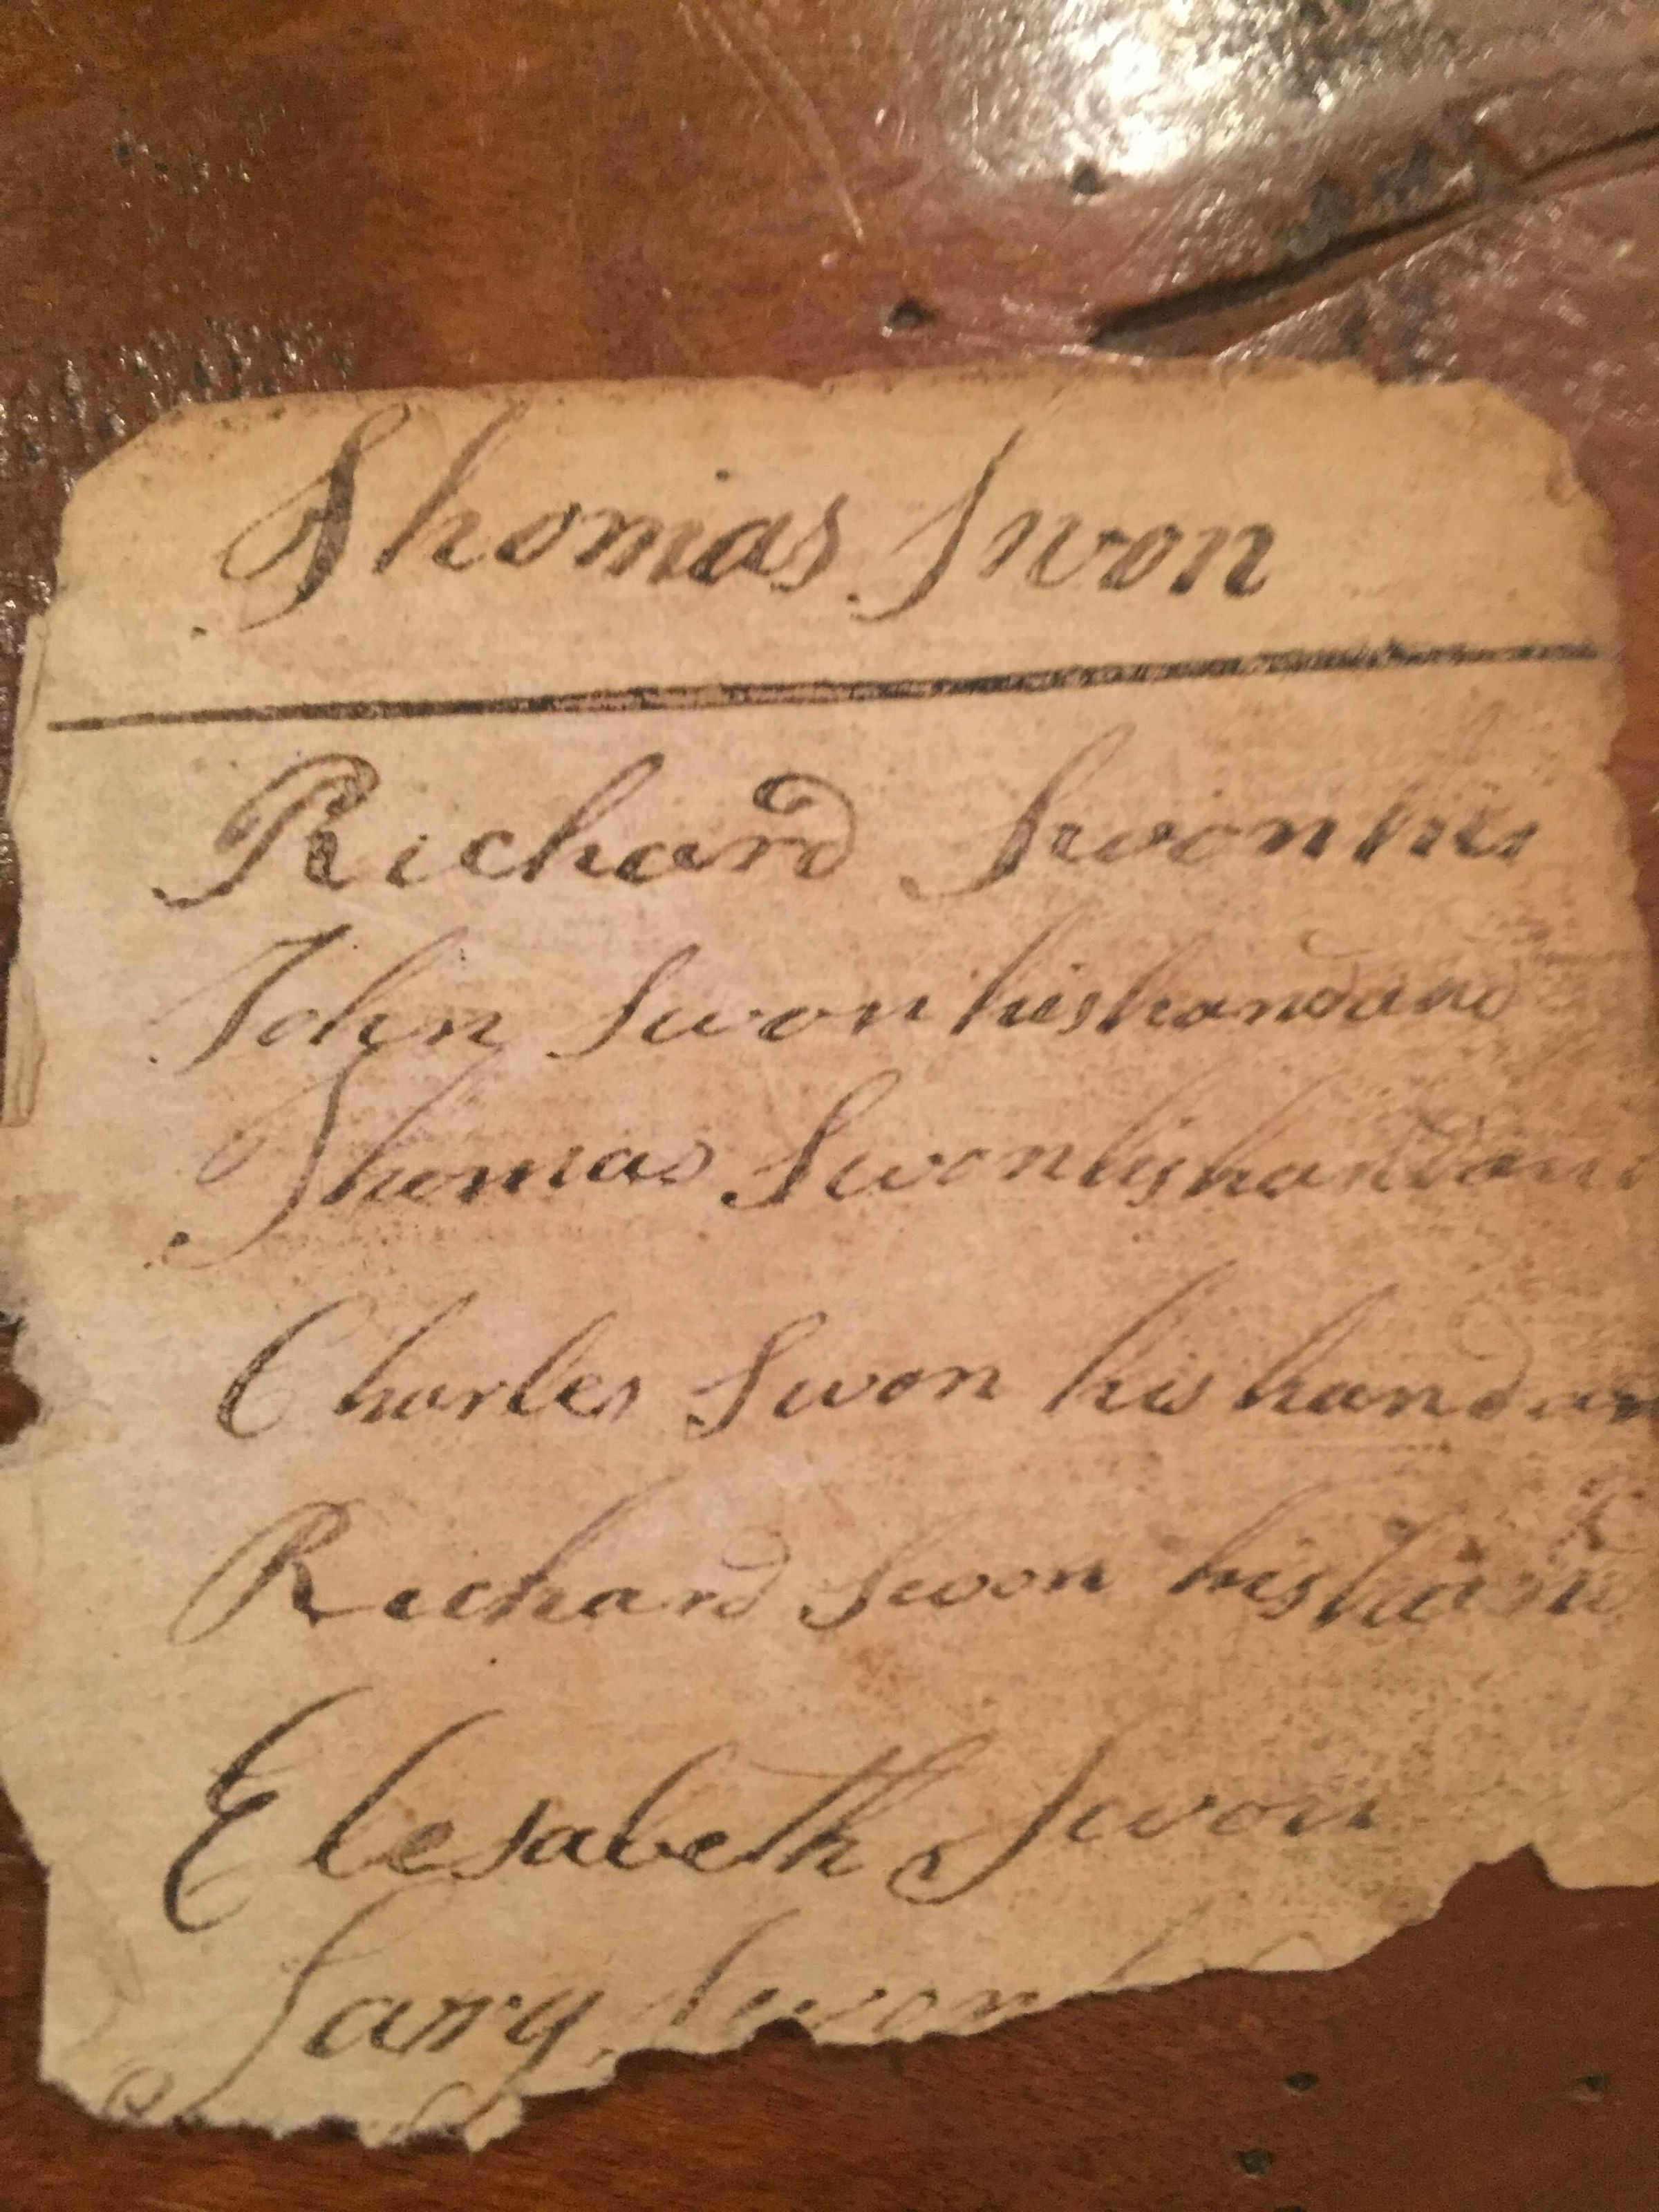 Thomas Swon
Richard Swon his
John Swon his hand and
Thomas Swon his hand and
Charles Swon his hand an
Richard Swon his hand
Elesabeth Swon
Sary Swon